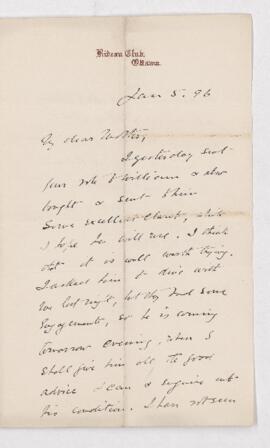 Rideau Club,
Ottawa.
Jan 5. 96
My dear
I yesterday sent
your note to William & also
bought & sent them
some excellent claret, which
I hope he will use. I think
that it is well worth trying.
I asked him to dine with
me last night, but they had some
engagements, so he is coming
tomorrow evening, when I
shall give him all the good
advice I can & enquire into
his condition. I have not seen